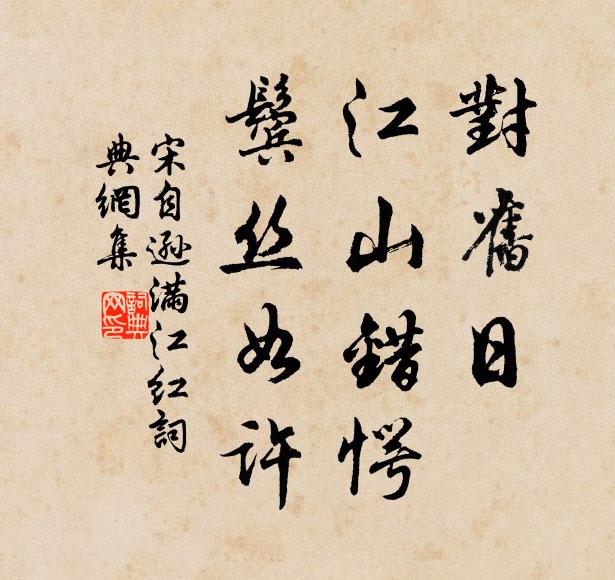 對舊日
江山錯愕
鬓丝如许
宋自遜滿江红詞
典網集
詞典
网印